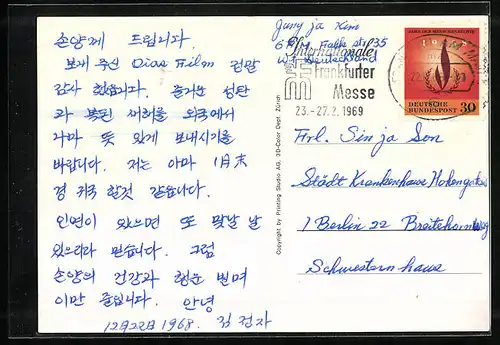 손양께 드립니다.
보내 주신 Dias Film 정말
감사 했습니다. 즐거운 성탄
과 복된 새해를 외국에서
나마 뜻 있게 보내시기를
바랍니다. 저는 아마 1月末
경 귀국 할것 같습니다.
인연이 있으면 또 맞날 날
있으리라 믿습니다. 그럼
손양의 건강과 행운 빌며
이만 줄입니다. 안녕
12月22日 1968. 김정자
Copyright by Printing Studio AG, 3D-Color Dept. Zürich
Jung ja Kim
6 FfM. Falkstr. 35
W. Deutschland
Internationale
Frankfurter
Messe
23.-27.2.1969
JAHR DER MENSCHENRECHTE
1968
DEUTSCHE
BUNDESPOST 30
Frl. Sin ja Son
Städt Krankenhaus
1 Berlin 22
Schwesternhaus